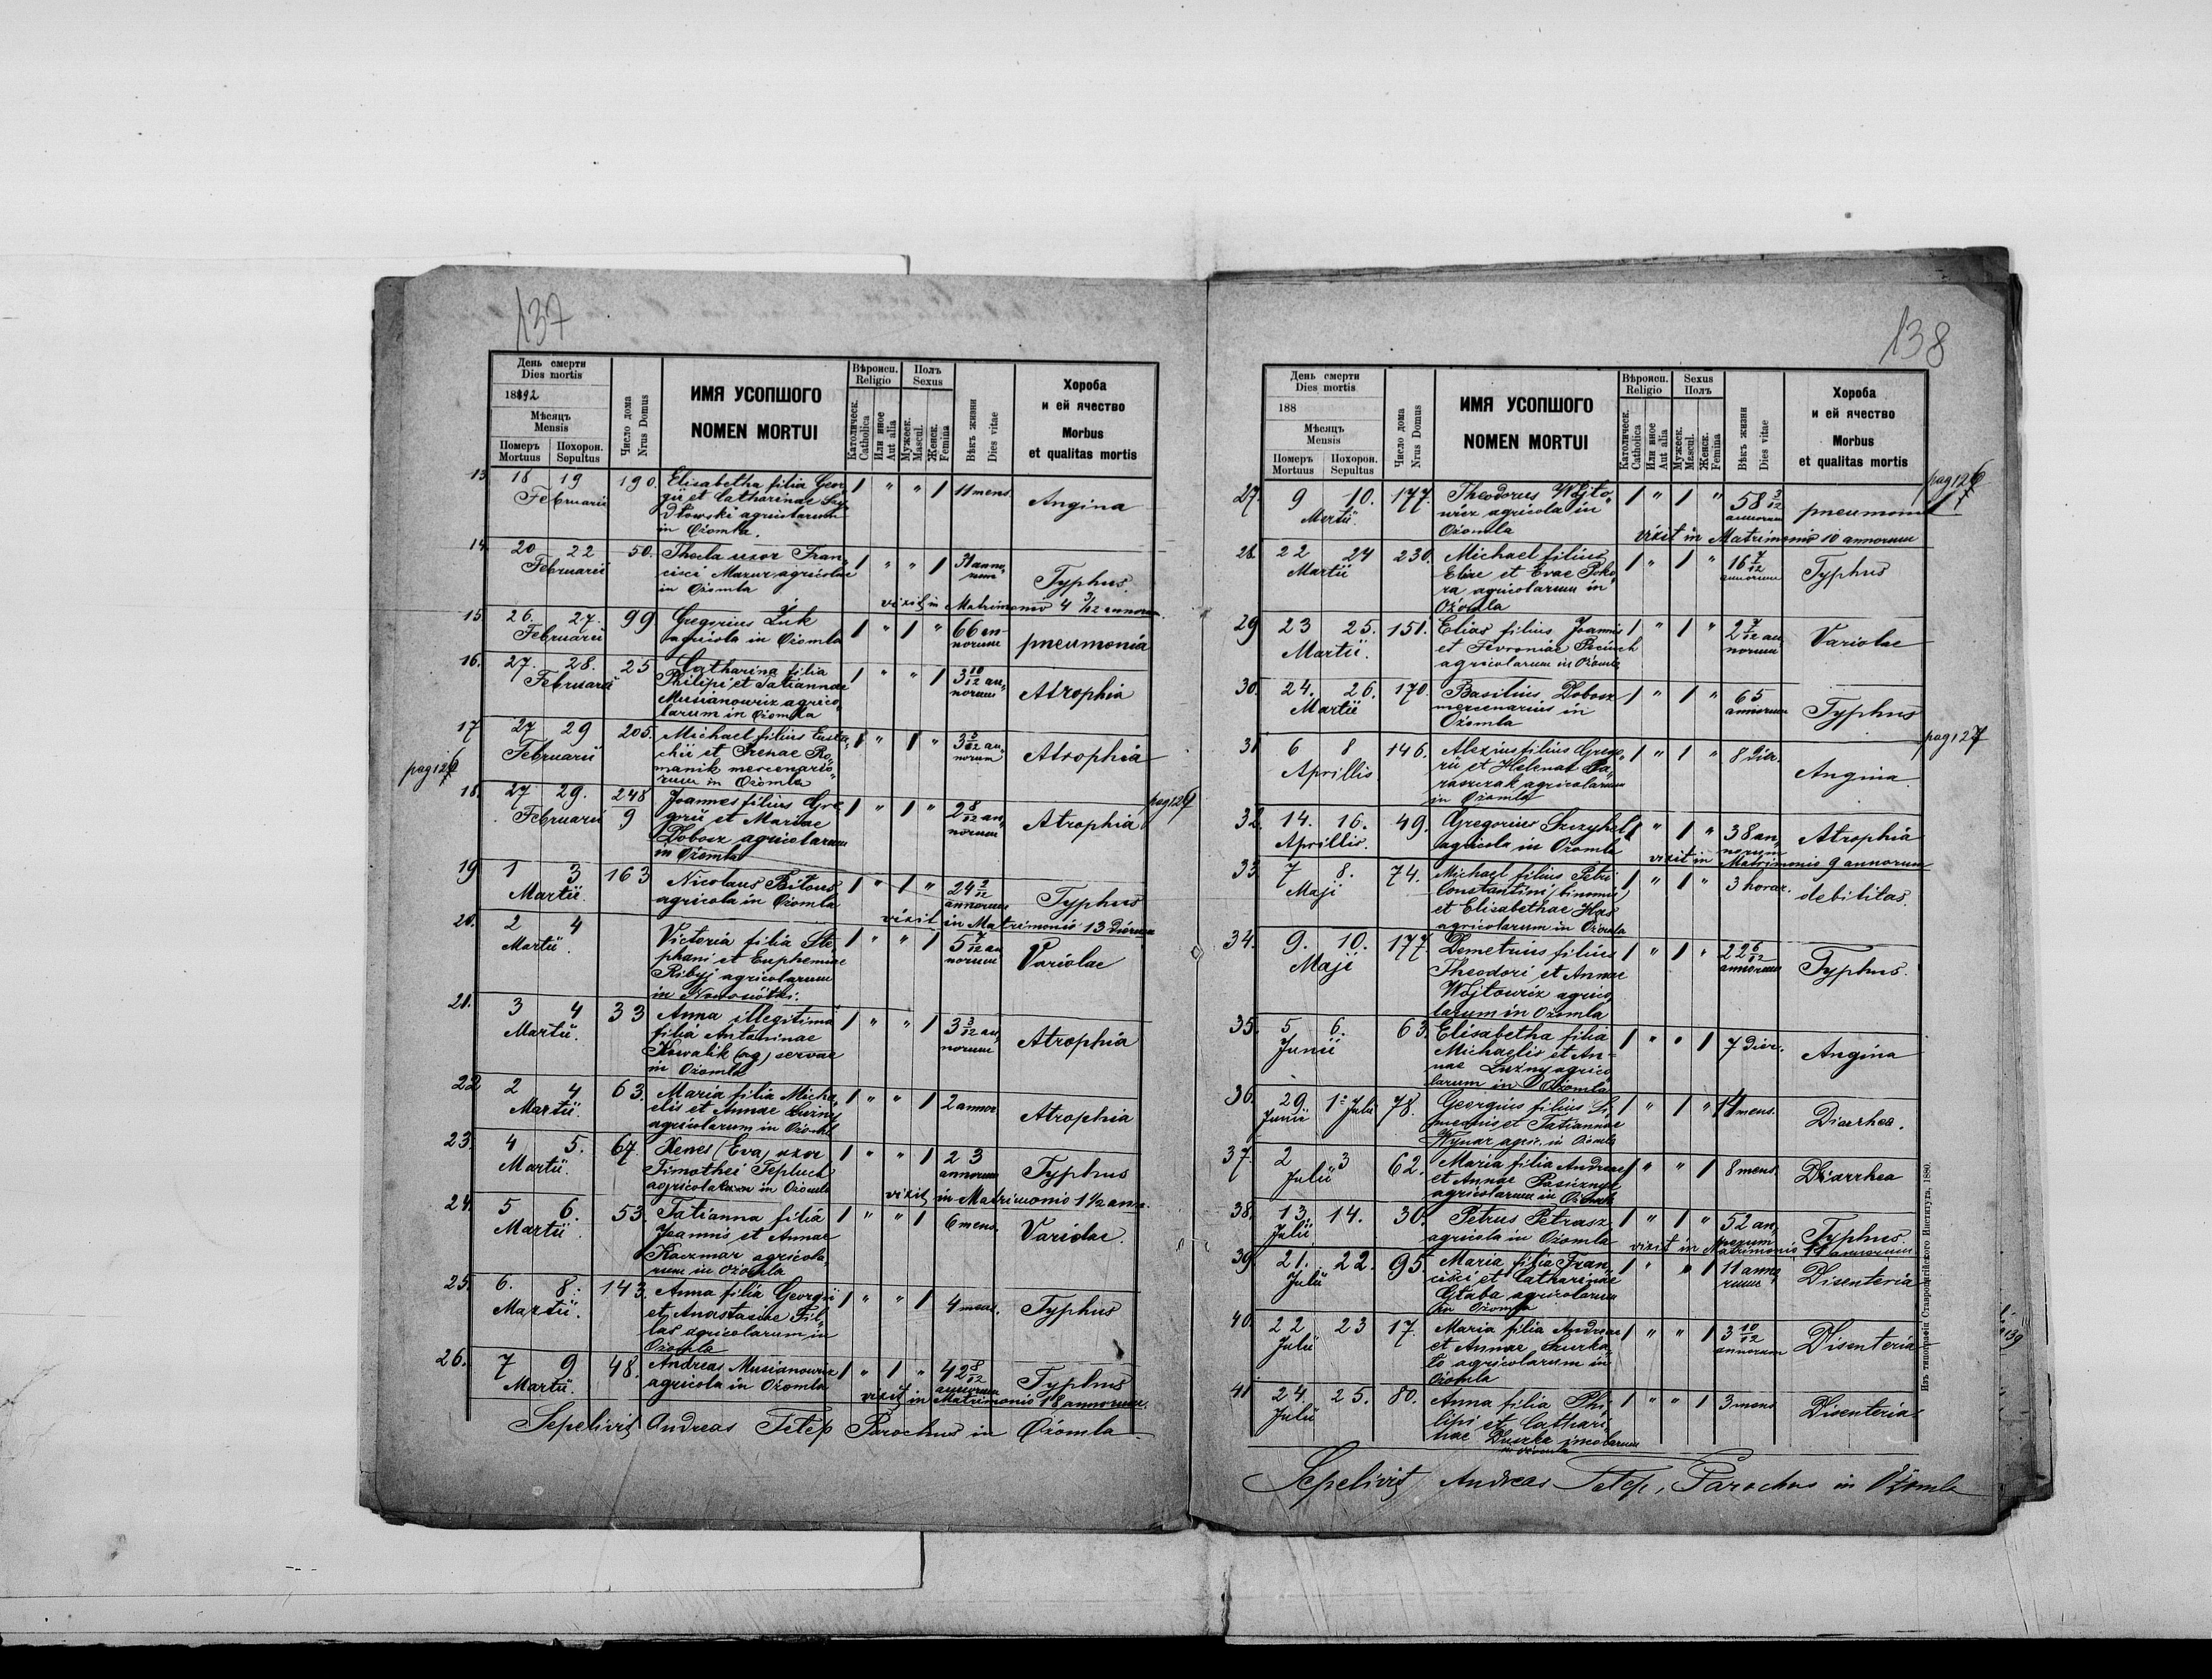 137
День смерти
Dies mortis
1892
Мѣсяцъ
Mensis
Померъ
Mortuus
Похорон.
Sepultus
Число дома
Nrus Domus
ИМЯ УСОПШОГО
NOMEN MORTUI
Вѣроисп.
Religio
Католическ.
Catholica
Или иное
Aut alia
Полъ
Sexus
Мужеск.
Mascul.
Женск.
Femina
Вѣкъ жизни
Dies vitae
Хороба
и ей ячество
Morbus
et qualitas mortis
13 18 19 190. Elisabetha filia Geor„ 1 " " 1 11 mens. Angina
Februarii gii et Catharinae
dłowski agricolarum
in Ożomla.
14 20 22 50. Thecla uxor Fran„ 1 " " 1 31 anno„ Typhus.
Februarii cisci Mazur agricolae rum
in Ożomla
vixit in Matrimonio 4 3/12 annorum
15 26. 27. 99 Gregorius Żuk 1 " 1 " 66 an- pneumonia
Februarii agricola in Ożomla norum
16. 27. 28. 25 Catharina filia 1 " " 1 3 10/12 an„ Atrophia
Februarii Philipi et Tatiannae norum
Musianowicz agrico„
larum in Ożomla
17 27 29 205. Michael filius Eusta„ 1 " 1 " 3 an„ Atrophia
Februarii chii et Irenae Ro„ norum
manik mercenario„
rum in Ożomla
pag 126
18. 27 29. 248 Joannes filius Gre 1 " 1 " 2 8/12 an„ Atrophia
Februarii 9 gorii et Mariae norum
Dobosz agricolarum
in Ożomla
19 1 3 163 Nicolaus Bilous 1 " 1 " 24 annorum Typhus
Martii. agricola in Ożomla
vixit in Matrimonio 13 dierum
20. 2 4 Victoria filia Ste„ 1 " " 1 5 7/12 an Variolae
Martii. phani et Euphemiae norum
Ribyj agricolarum
in Nowosiółki.
21. 3 4 33 Anna illegitima 1 " " 1 3 3/12 an„ Atrophia
Martii. filia Antoninae norum
Kowalik (ag) servae
in Ożomla
22 2 4 63. Maria filia Micha„ 1 " " 1 2 annor Atrophia
Martii. elis et Annae Luzny
agricolarum in Ożomla
23. 4 5. 67. Xenes (Eva) uxor 1 " " 1 23 Typhus
Martii. Timothei Tepluch annorum
agricolarum in Ożomla
vixit in Matrimonio 1 1/2 ann.
24. 5 6. 53. Tatianna filia 1 " " 1 6 mens. Variolae.
Martii. Joannis et Annae
Kaczmar agricola„
rum in Ożomla
25. 6. 8. 143. Anna filia Georgii 1 " " 1 4 mens. Typhus
Martii. et Anastasiae Fil„
las agricolarum in
Ożomla
26. 7 9 48. Andreas Musianowicz 1 " 1 " 42 8/12 Typhus
Martii. agricola in Ożomla annorum
vixit in Matrimonio 18 annorum.
Sepelivit Andreas Tetep Parochus in Ożomla
138
День смерти
Dies mortis
188
Мѣсяцъ
Mensis
Померъ
Mortuus
Похорон.
Sepultus
Число дома
Nrus Domus
ИМЯ УСОПШОГО
NOMEN MORTUI
Вѣроисп.
Religio
Католическ.
Catholica
Или иное
Aut alia
Sexus
Полъ
Мужеск.
Mascul.
Женск.
Femina
Вѣкъ жизни
Dies vitae
Хороба
и ей ячество
Morbus
et qualitas mortis
27. 9 10. 177. Theodorus Wojto„ 1 " 1 " 58 pneumonia
Martii wicz agricola in annorum
Ożomla vixit in Matrimonio 10 annorum
28. 22 24 230. Michael filius 1 " 1 " 16 7/12 Typhus
Martii Eliae et Evae Poko„ annorum
ra agricolarum in
Ożomla
29 23 25. 151. Elias filius Joannis 1 " 1 " 2 7/12 an Variolae
Martii. et Fevroniae norum
agricolarum in Ożomla
30. 24. 26. 170. Basilius Dobosz 1 " 1 " 65 Typhus
Martii mercenarius in annorum
Ożomla
pag 127
31 6 8 146. Alexius filius Grego„ 1 " 1 " 8 dier. Angina
Aprillis rii et Helenae Ba„
raszczak agricolarum
in Ożomla
32. 14. 16. 49. Gregorius 1 " 1 " 38 an„ Atrophia
Aprillis. agricola in Ożomla norum
vixit in Matrimonio 9 annorum
33 7 8. 74. Michael filius Petri 1 " 1 " 3 horar. debilitas.
Maji Constantini (binomii)
et Elisabethae Has
agricolarum in Ożomla
34. 9. 10. 177. Demetrius filius 1 " 1 " 22 6/12 Typhus.
Maji Theodori et Annae annorum
Wojtowicz agrico„
larum in Ożomla
35. 5 6. 63. Elisabetha filia 1 " " 1 7 dier. Angina
Junii Michaelis et An=
nae Luzny agrico
larum in Ożomla
36. 29 1º Julii 78. Georgius filius Si„ 1 " 1 " 14 mens. Diarrhea.
Junii meonis et Tatiannae
Wynar agric. in Ożomla
37. 2 3 62. Maria filia Andreae 1 " " 1 8 mens. Diarrhea
Julii et Annae Pasicznyk
agricolarum in Ożomla
38. 13. 14. 30. Petrus Petrasz 1 " 1 " 52 an„ Typhus
Julii agricola in Ożomla norum
vixit in Matrimonio annorum
39 21. 22. 95. Maria filia Fran„ 1 " " 1 11 anno„ Disenteria
Julii cisci et Catharinae rum
Głaba agricolarum
in Ożomla
40. 22 23 17. Maria filia Andreae 1 " " 1 3 10/12 Disenteria
Julii et Annae Szurka„ annorum
ło agricolarum in
Ożomla
41 24 25. 80. Anna filia Phi„ 1 " " 1 3 mens Disenteria
Julii lipi et Cathari„
nae Duszka incolarum
in Ożomla
Sepelivit Andreas Tetep, Parochus in Ożomla
Изъ типографіи Ставропигійского Института, 1880.
139